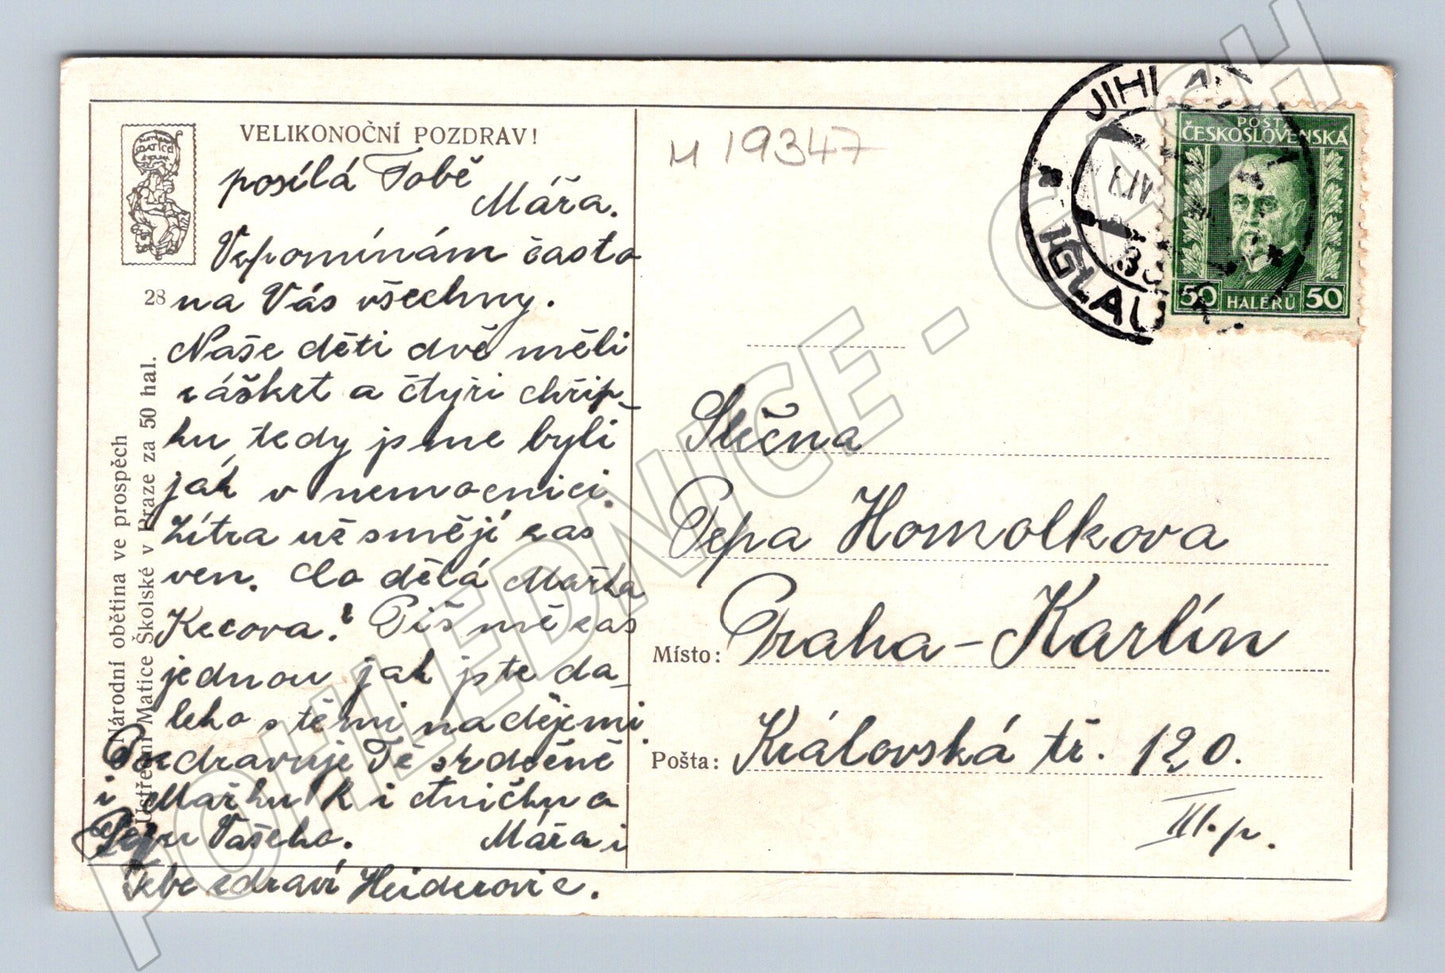 VELIKONOČNÍ POZDRAV!
posílá Tobě
Máňa.
Vzpomínám často
na Vás všechny.
Naše děti dvě měli
záškrt a čtyři chřip-
ku, tedy jsme byli
jak v nemocnici.
Zítra už smějí zas
ven. Co dělá Mařka
Kecova? Piš mě zas
jednou jak jste da-
leko s těmi nadějemi.
Pozdravuje Tě srdečně
i Mařku R i
Pepu Vašeho. Máňa i
Tebe zdraví
28
Národní obětina ve prospěch
Ústřední Matice Školské v Praze za 50 hal.
M 19347
JIHLAVA
IGLAU
POŠTA
ČESKOSLOVENSKÁ
50 HALÉŘŮ 50
Slečna
Pepa Homolkova
Místo: Praha-Karlín
Pošta: Královská tř. 120.
III. p.
POHLEDNICE - CASH